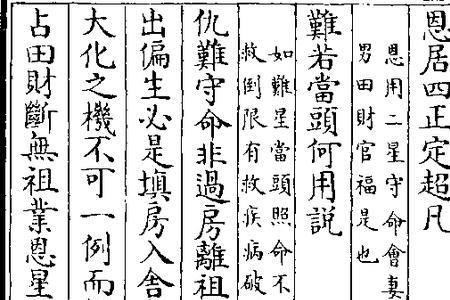 恩居四正定超凡
恩用二星守命會妻
男田財官福是也
難若當頭何用説
如難星當頭照命不
救倒限有救疾病破
仇難守命非過房離祖
出偏生必是填房入舎
大化之機不可一例而
占田財斷無祖業恩星